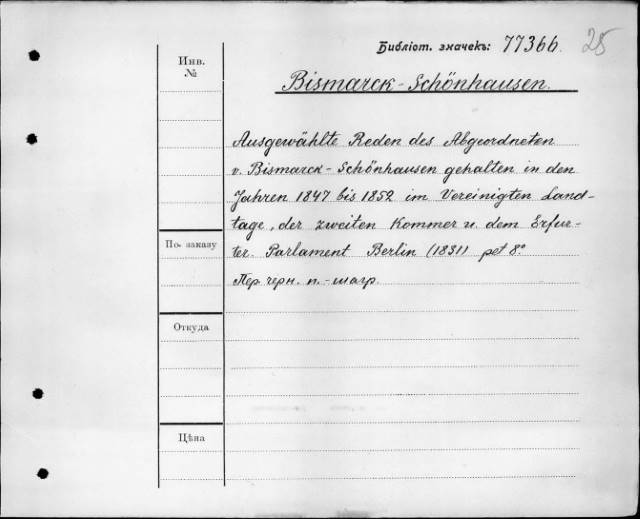 Библіот. значекъ: 77366. 25
Инв.
№
Bismarck-Schönhausen.
Ausgewählte Reden des Abgeordneten
v. Bismarck-Schönhausen gehalten in den
Jahren 1847 bis 1852 im Vereinigten Land-
tage, der zweiten Kommer u. dem Erfur-
По заказу
ter. Parlament Berlin (1831) pet 8°
Пер черн. п.-шагр.
Откуда
Цѣна